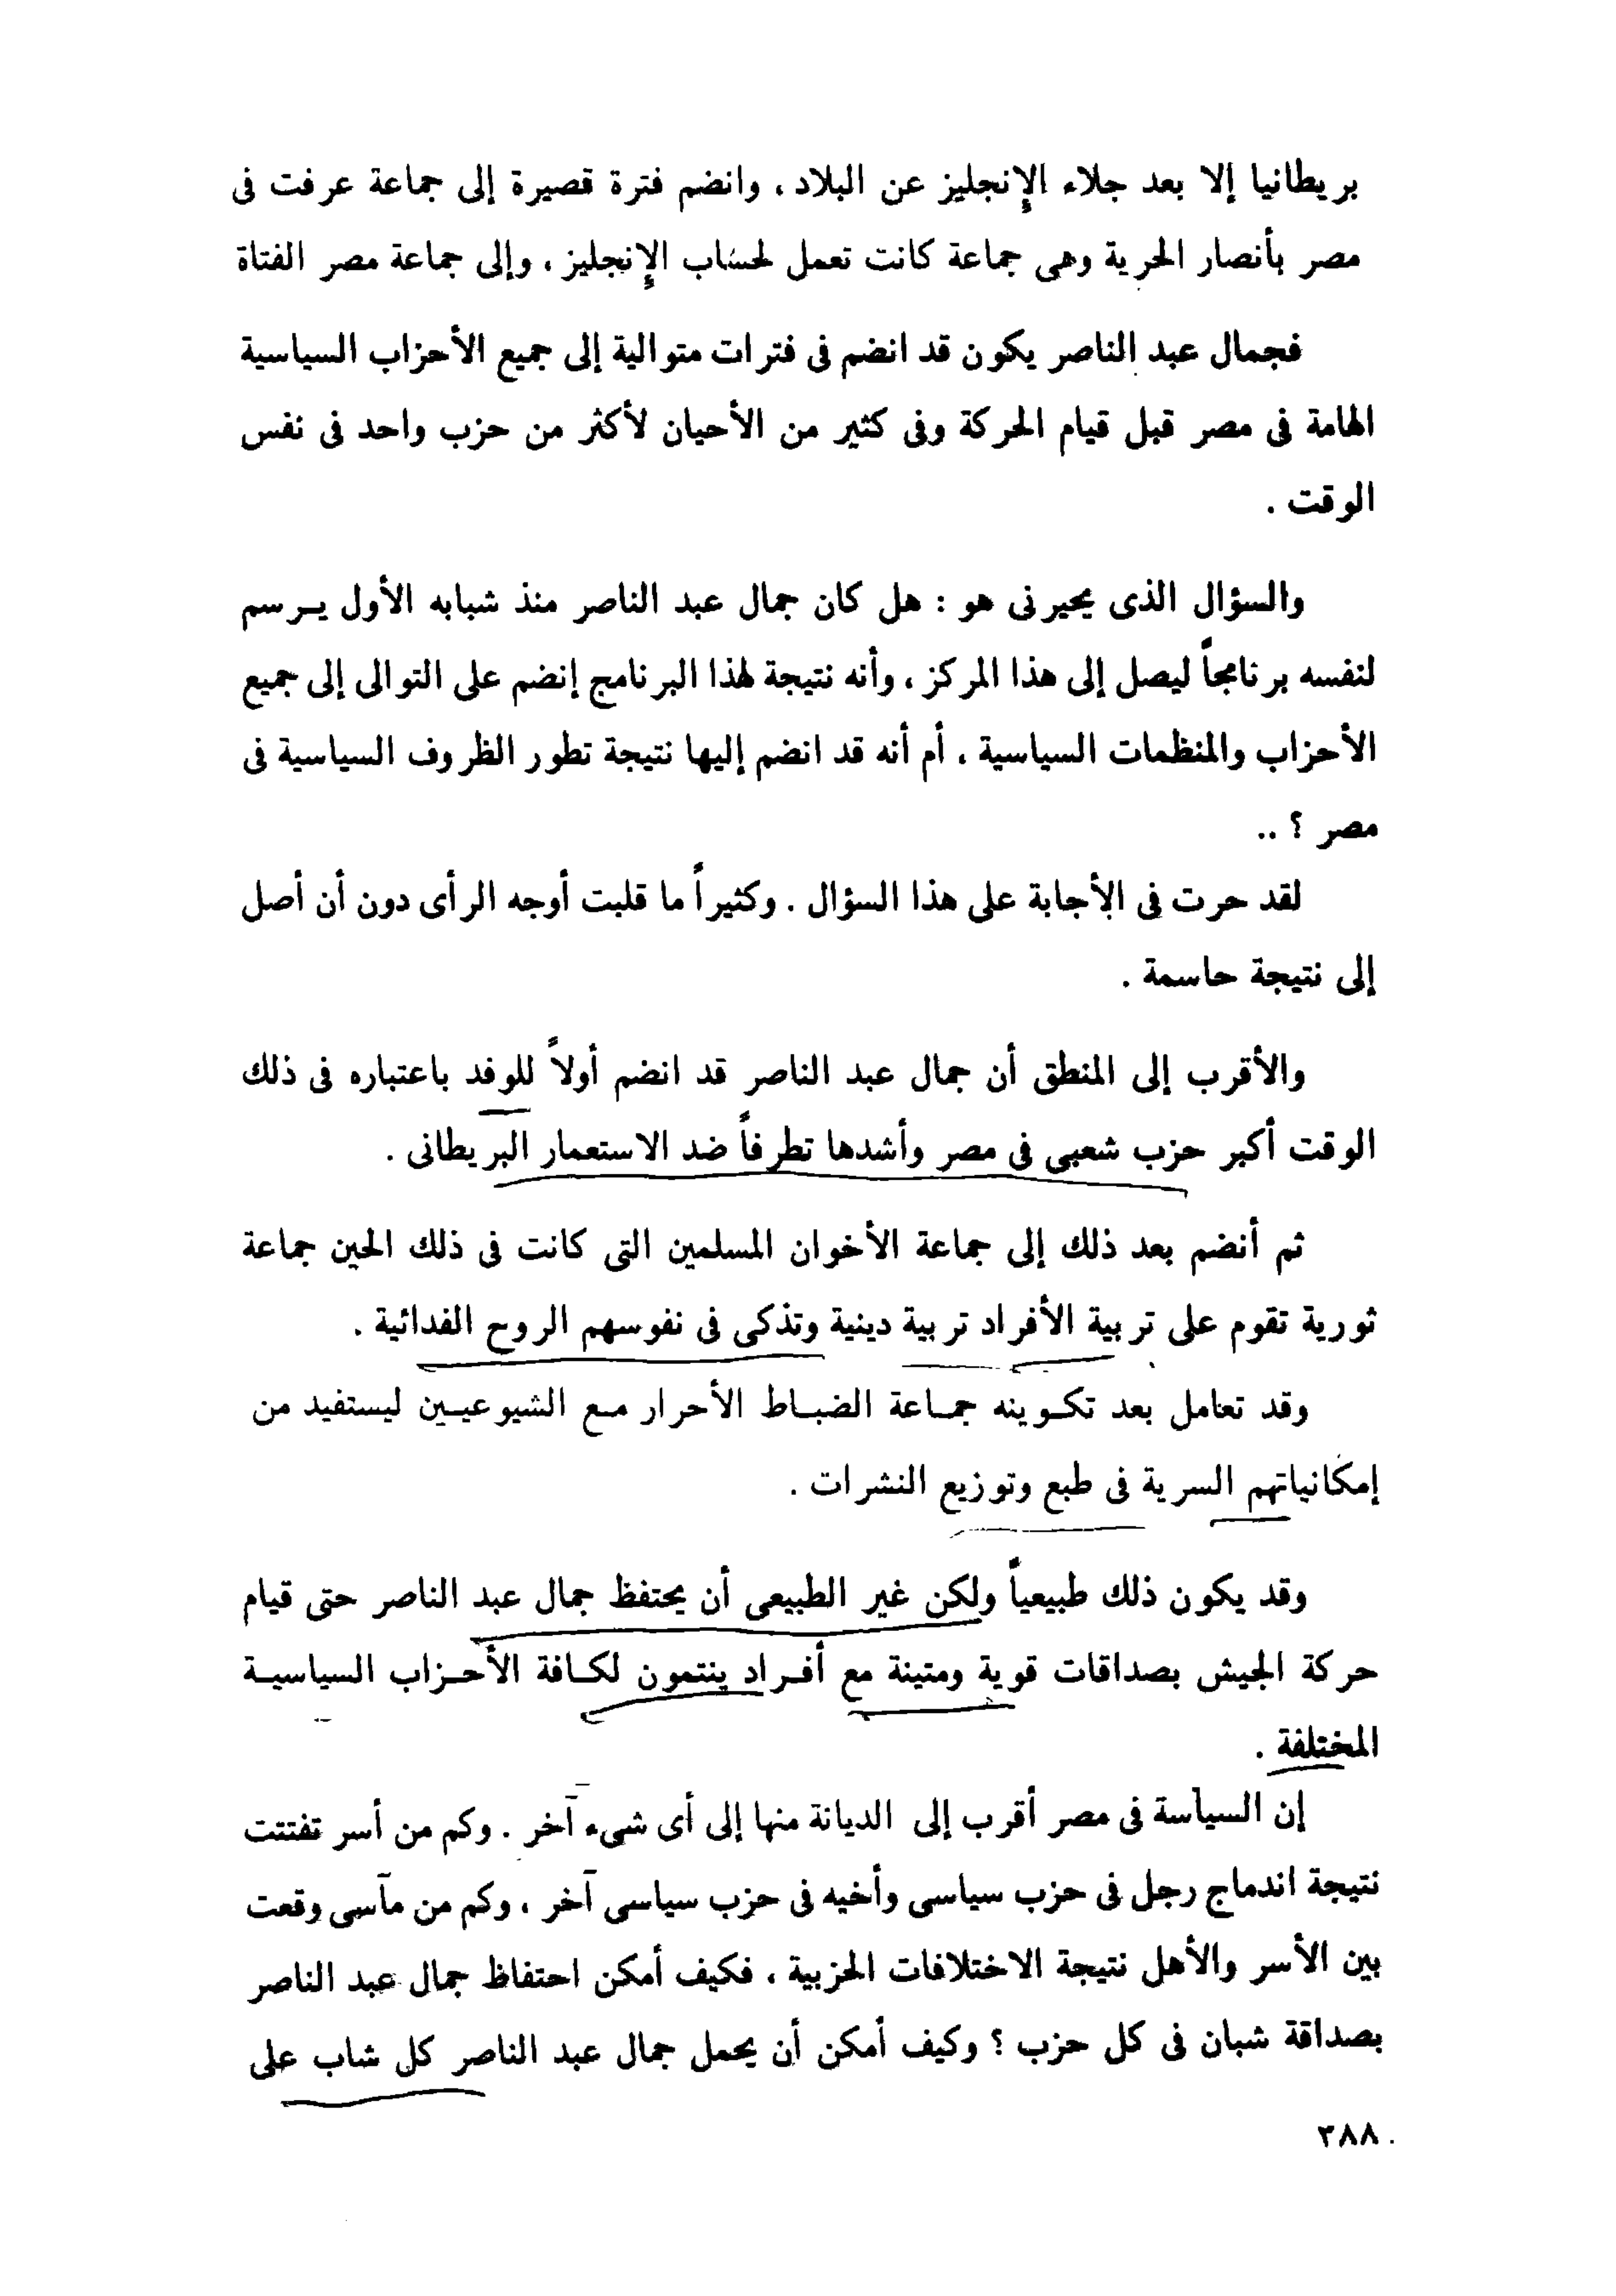 بريطانيا إلا بعد جلاء الإنجليز عن البلاد ، وانضم فترة قصيرة إلى جماعة عرفت فى
مصر بأنصار الحرية وهى جماعة كانت تعمل لحساب الإنجليز ، وإلى جماعة مصر الفتاة
فجمال عبد الناصر يكون قد انضم فى فترات متوالية إلى جميع الأحزاب السياسية
الهامة فى مصر قبل قيام الحركة وفى كثير من الأحيان لأكثر من حزب واحد فى نفس
الوقت .
والسؤال الذى يحيرنى هو : هل كان جمال عبد الناصر منذ شبابه الأول يرسم
لنفسه برنامجاً ليصل إلى هذا المركز ، وأنه نتيجة لهذا البرنامج إنضم على التوالى إلى جميع
الأحزاب والمنظمات السياسية ، أم أنه قد انضم إليها نتيجة تطور الظروف السياسية فى
مصر ؟ ..
لقد حرت فى الأجابة على هذا السؤال . وكثيراً ما قلبت أوجه الرأى دون أن أصل
إلى نتيجة حاسمة .
والأقرب إلى المنطق أن جمال عبد الناصر قد انضم أولاً للوفد باعتباره فى ذلك
الوقت أكبر حزب شعبى فى مصر وأشدها تطرفاً ضد الاستعمار البريطانى .
ثم أنضم بعد ذلك إلى جماعة الأخوان المسلمين التى كانت فى ذلك الحين جماعة
ثورية تقوم على تربية الأفراد تربية دينية وتذكى فى نفوسهم الروح الفدائية .
وقد تعامل بعد تكوينه جماعة الضباط الأحرار مع الشيوعيين ليستفيد من
إمكانياتهم السرية فى طبع وتوزيع النشرات .
وقد يكون ذلك طبيعياً ولكن غير الطبيعى أن يحتفظ جمال عبد الناصر حتى قيام
حركة الجيش بصداقات قوية ومتينة مع أفراد ينتمون لكافة الأحزاب السياسية
المختلفة .
إن السياسة فى مصر أقرب إلى الديانة منها إلى أى شىء آخر . وكم من أسر تفتتت
نتيجة اندماج رجل فى حزب سياسى وأخيه فى حزب سياسى آخر ، وكم من مآسى وقعت
بين الأسر والأهل نتيجة الاختلافات الحزبية ، فكيف أمكن احتفاظ جمال عبد الناصر
بصداقة شبان فى كل حزب ؟ وكيف أمكن أن يحمل جمال عبد الناصر كل شاب على
٣٨٨